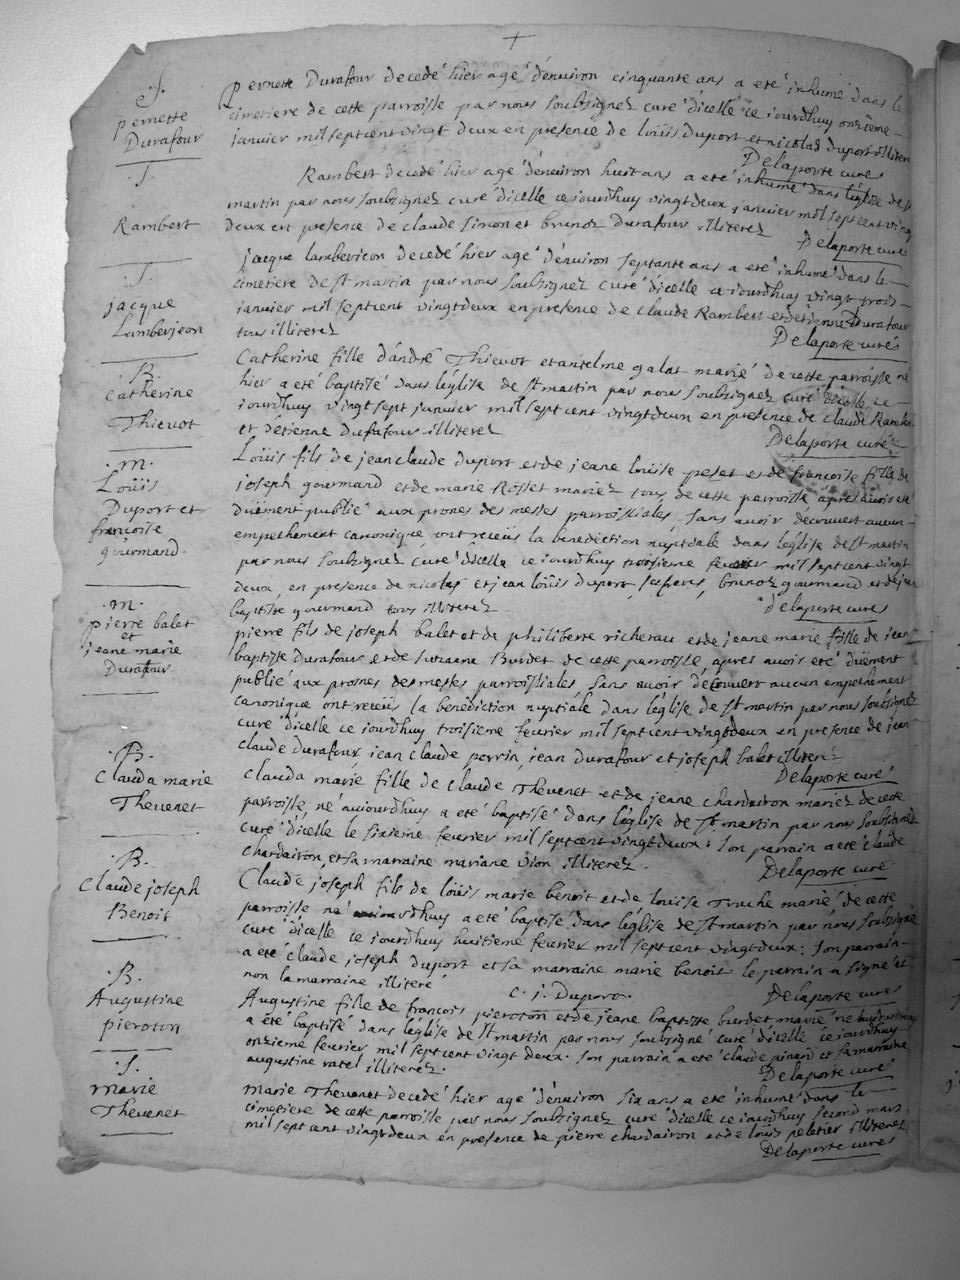 +
.S.
pernette
Durafour
Pernette Durafour decedé hier agé d'environ cinquante ans a eté inhumé dans le
cimetiere de cette parroisse par nous soubsignez curé dicelle ce iourdhuy onzieme
janvier mil sept cent vingt deux en presence de loüis duport et nicolas duport illiterez
Delaporte curé
.S.
Rambert
Rambert decedé hier agé d'environ huit ans a eté inhumé dans l'église de st
martin par nous soubsignez curé dicelle ce iourdhuy vingt deux janvier mil sept cent vingt
deux en presence de claude simon et brunoz durafour illiterez
Delaporte curé
.S.
jacque
Lamberjeon
jacque lamberieon decedé hier agé d'environ septante ans a eté inhumé dans le
cimetiere de st martin par nous soubsignez curé dicelle ce iourdhuy vingt trois
janvier mil sept cent vingtdeux en presence de claude Rambert et detienne Durafour
tous illiterez
Delaporte curé
.B.
Catherine
Thievot
Catherine fille d'andré Thievot et antelme galat marié de cette parroisse né
hier a eté baptisé dans l'église de st martin par nous soubsignez curé dicelle ce
iourdhuy vingt sept janvier mil sept cent vingtdeux en presence de claude Rambert
et detienne Durafour illiterez
Delaporte curé
.m.
Loüis
Duport et
francoise
gourmand.
Loüis fils de jean claude duport et de jeane louise peset et de francoise fille de
joseph gourmand et de marie Rosset mariez tous de cette parroisse apres avoir eté
düement publié aux prones des messes parroissiales sans avoir découvert aucun
empechement canonique ont receüs la benediction nuptiale dans l'église de st martin
par nous soubsignez curé dicelle ce iourdhuy troisieme fevrier mil sept cent vingt
deux, en presence de nicolas et jean loüis duport ses freres, brunoz gourmand et de jean
baptiste gourmand tous illiterez
Delaporte curé
.m.
pierre balet
et
jeane marie
Durafour
pierre fils de joseph balet et de philiberte richerau et de jeane marie fille de jean
baptiste durafour et de suzanne Burdet de cette parroisse, apres avoir eté düement
publié aux prosnes des messes parroissiales sans avoir découvert aucun empechement
canonique ont receüs la benediction nuptiale dans l'église de st martin par nous soubsignez
curé dicelle ce iourdhuy troisieme fevrier mil sept cent vingtdeux en presence de jean
claude durafour, iean claude perrin, iean durafour et joseph balet illiterez
Delaporte curé
.B.
Clauda marie
Thevenet
Clauda marie fille de claude Thevenet et de jeane chardairon mariez de cette
parroisse né aujourdhuy a eté baptisé dans l'église de st martin par nous soubsignez
curé dicelle le sixieme fevrier mil sept cent vingtdeux: son parrain a eté claude
chardairon, et sa marraine mariane vion illiterez.
Delaporte curé
.B.
Claude joseph
Benoit
Claude joseph fils de loüis marie benoit et de louise Truche marié de cette
parroisse né auiourdhuy a eté baptisé dans l'église de st martin par nous soubsigné
curé dicelle ce iourdhuy huitieme fevrier mil sept cent vingtdeux: son parrain
a eté claude joseph duport et sa marraine marie benoit le parrain a signé et
non la marraine illiteré
c. j. Duport.
Delaporte curé
.B.
Augustine
pieroton
Augustine fille de francois pieroton et de jeane baptiste burdet marié né
a eté baptisé dans l'église de st martin par nous soubsigné curé dicelle ce iourdhuy
onzieme fevrier mil sept cent vingt deux. son parrain a eté claude pinard et sa marraine
augustine vatel illiterez.
Delaporte curé
.S.
marie
Thevenet
marie Thevenet decedé hier agé d'environ six ans a eté inhumé dans le
cimetiere de cette parroisse par nous soubsignez curé dicelle ce iourdhuy second mars
mil sept cent vingtdeux en presence de pierre chardairon et de loüis peletier illiterez
Delaporte curé